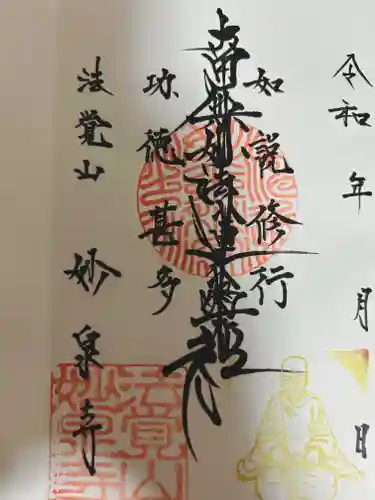 令和 年 月 日
如説修行
南無妙法蓮華経
功徳甚多
法覚山
妙泉寺
法覚山
妙泉寺